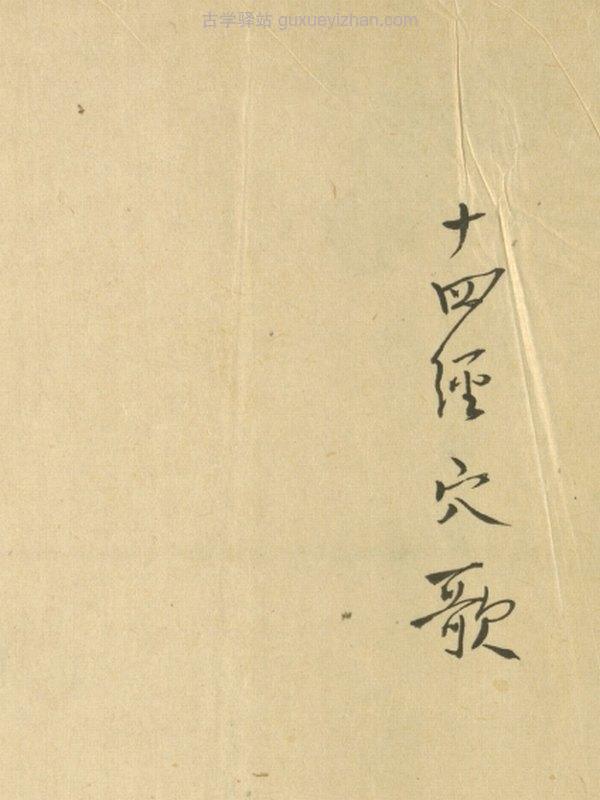 古学驿站 guxueyizhan.com
十四經穴歌